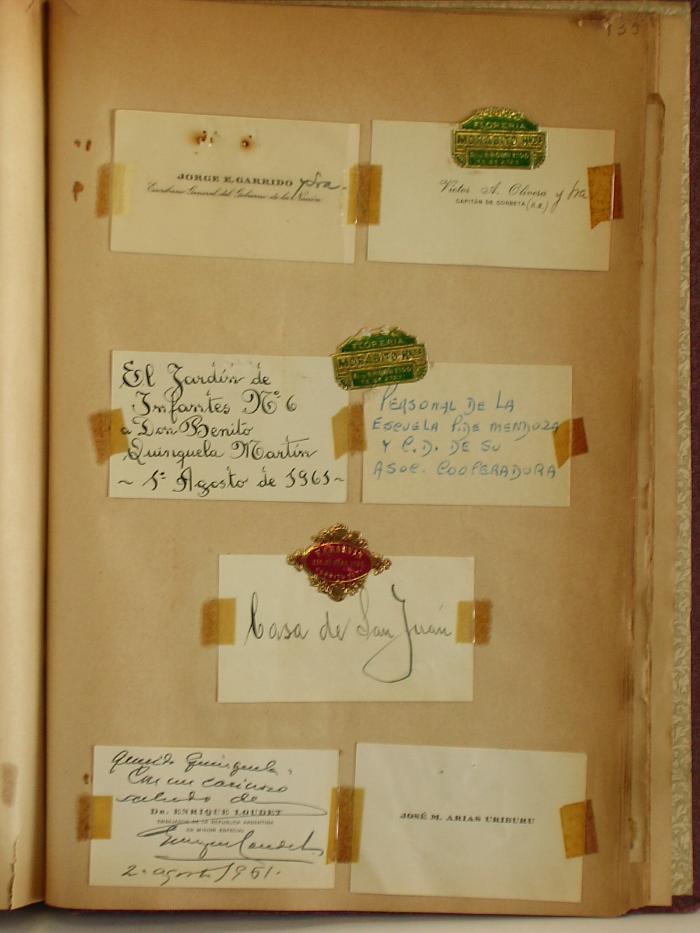 JORGE E. GARRIDO y Sra.
Escribano General del Gobierno de la Nación
FLORERIA
MORABITO Hnos
Victor A. Olivera y Sra
CAPITÁN DE CORBETA (R.E.)
El Jardín de
Infantes Nº 6
a Don Benito
Quinquela Martín
~ 1º Agosto de 1961 ~
FLORERIA
MORABITO Hnos
PERSONAL DE LA
ESCUELA P. DE MENDOZA
Y C.D. DE SU
ASOC. COOPERADORA
Casa de San Juán
querido Quinquela
Con un cariñoso
saludo de
DR. ENRIQUE LOUDET
EMBAJADOR DE LA REPUBLICA ARGENTINA
EN MISION ESPECIAL
Enrique Loudet
2. agosto 1961.
JOSÉ M. ARIAS URIBURU